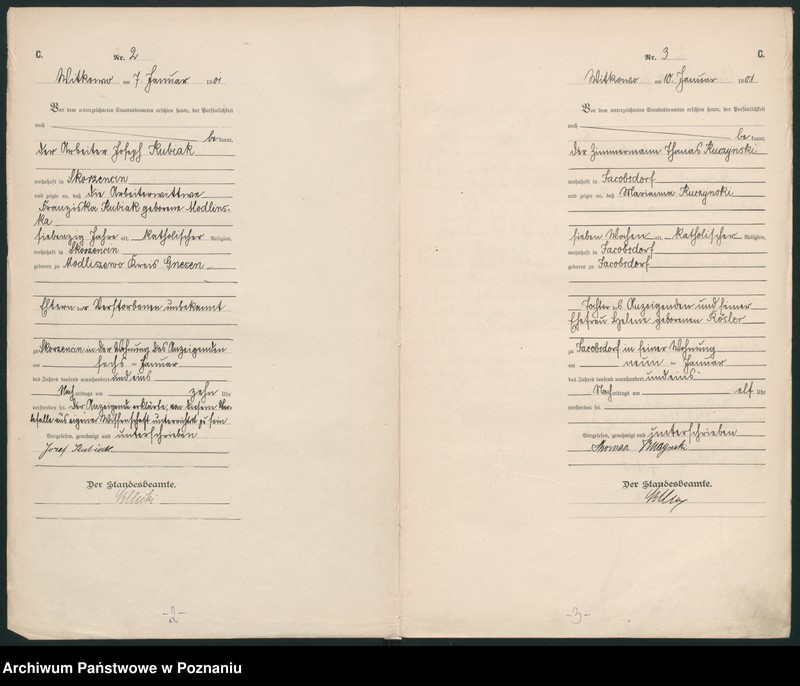 C.
Nr. 2
Witkowo am 7. Januar 1901
Vor dem unterzeichneten Standesbeamten erschien heute, der Persönlichkeit
nach
bekannt,
der Arbeiter Joseph Kubiak
wohnhaft in Skorzencin
und zeigte an, daß die Arbeiterwittwe
Franziska Kubiak geborene Modlins-
ka
siebenzig Jahre alt, katholischer Religion,
wohnhaft in Skorzencin
geboren zu Modliszewo Kreis Gnesen
Eltern der Verstorbenen unbekannt
zu Skorzencin in der Wohnung des Anzeigenden
am sechs - Januar
des Jahres tausend neunhundert und eins
Nachmittags um zehn Uhr
verstorben sei. Der Anzeigende erklärte, von diesem Ster-
befalle aus eigener Wissenschaft unterrichtet zu sein
Vorgelesen, genehmigt und unterschrieben
Josef Kubiak
Der Standesbeamte.
-2-
Nr. 3
C.
Witkowo am 10. Januar 1901
Vor dem unterzeichneten Standesbeamten erschien heute, der Persönlichkeit
nach
bekannt,
der Zimmermann Thomas Kuczynski
wohnhaft in Jacobsdorf
und zeigte an, daß Marianna Kuczynski
sieben Wochen alt, katholischer Religion,
wohnhaft in Jacobsdorf
geboren zu Jacobsdorf
Tochter des Anzeigenden und seiner
Ehefrau Helene geborenen Rösler
zu Jacobsdorf in seiner Wohnung
am neun - Januar
des Jahres tausend neunhundert und eins
Nachmittags um elf Uhr
verstorben sei.
Vorgelesen, genehmigt und unterschrieben
Thomas Kuczynski
Der Standesbeamte.
-3-
Archiwum Państwowe w Poznaniu